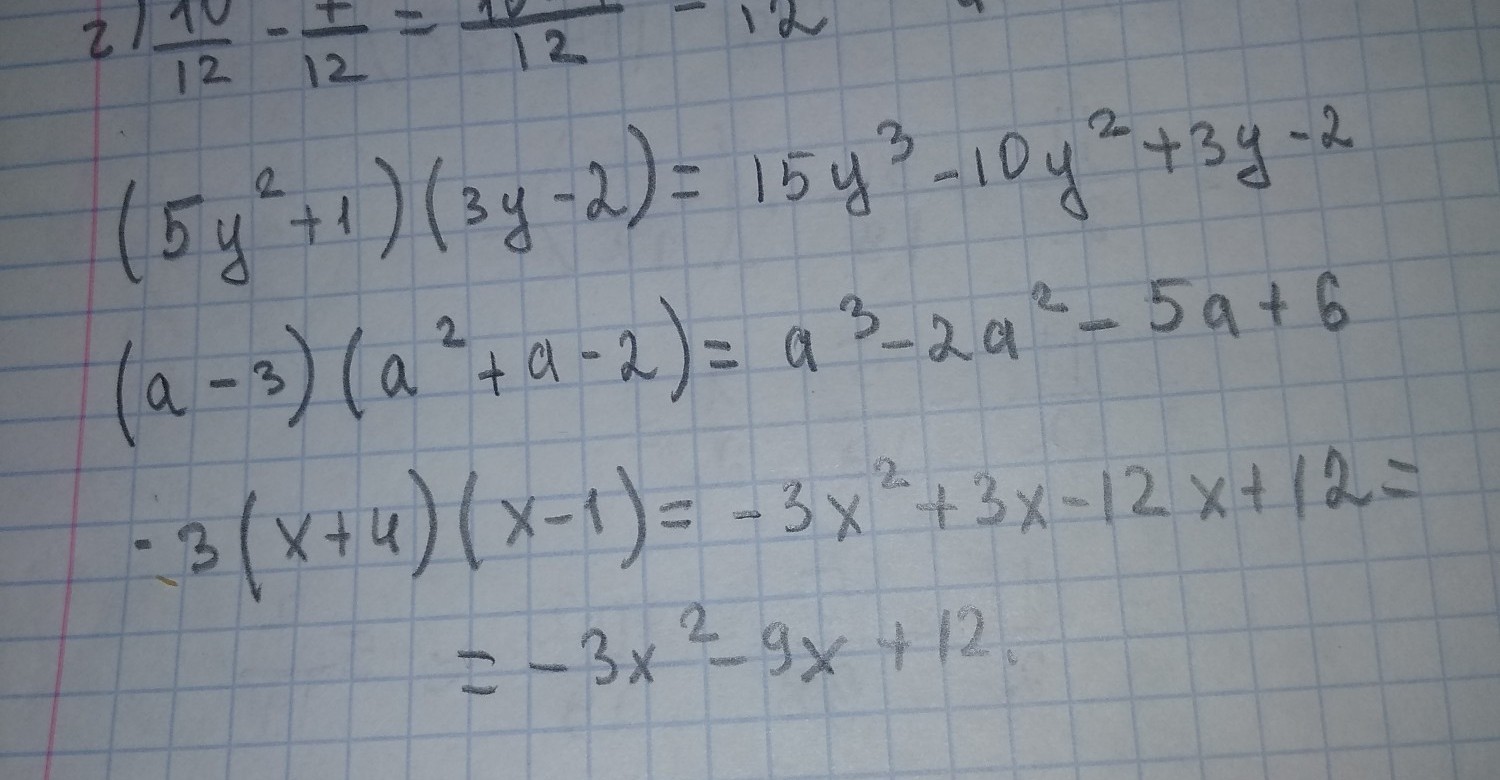 г) 10/12 - 7/12 = /12 = 12
(5y² + 1)(3y - 2) = 15y³ - 10y² + 3y - 2
(a - 3)(a² + a - 2) = a³ - 2a² - 5a + 6
-3(x + 4)(x - 1) = -3x² + 3x - 12x + 12 =
= -3x² - 9x + 12.